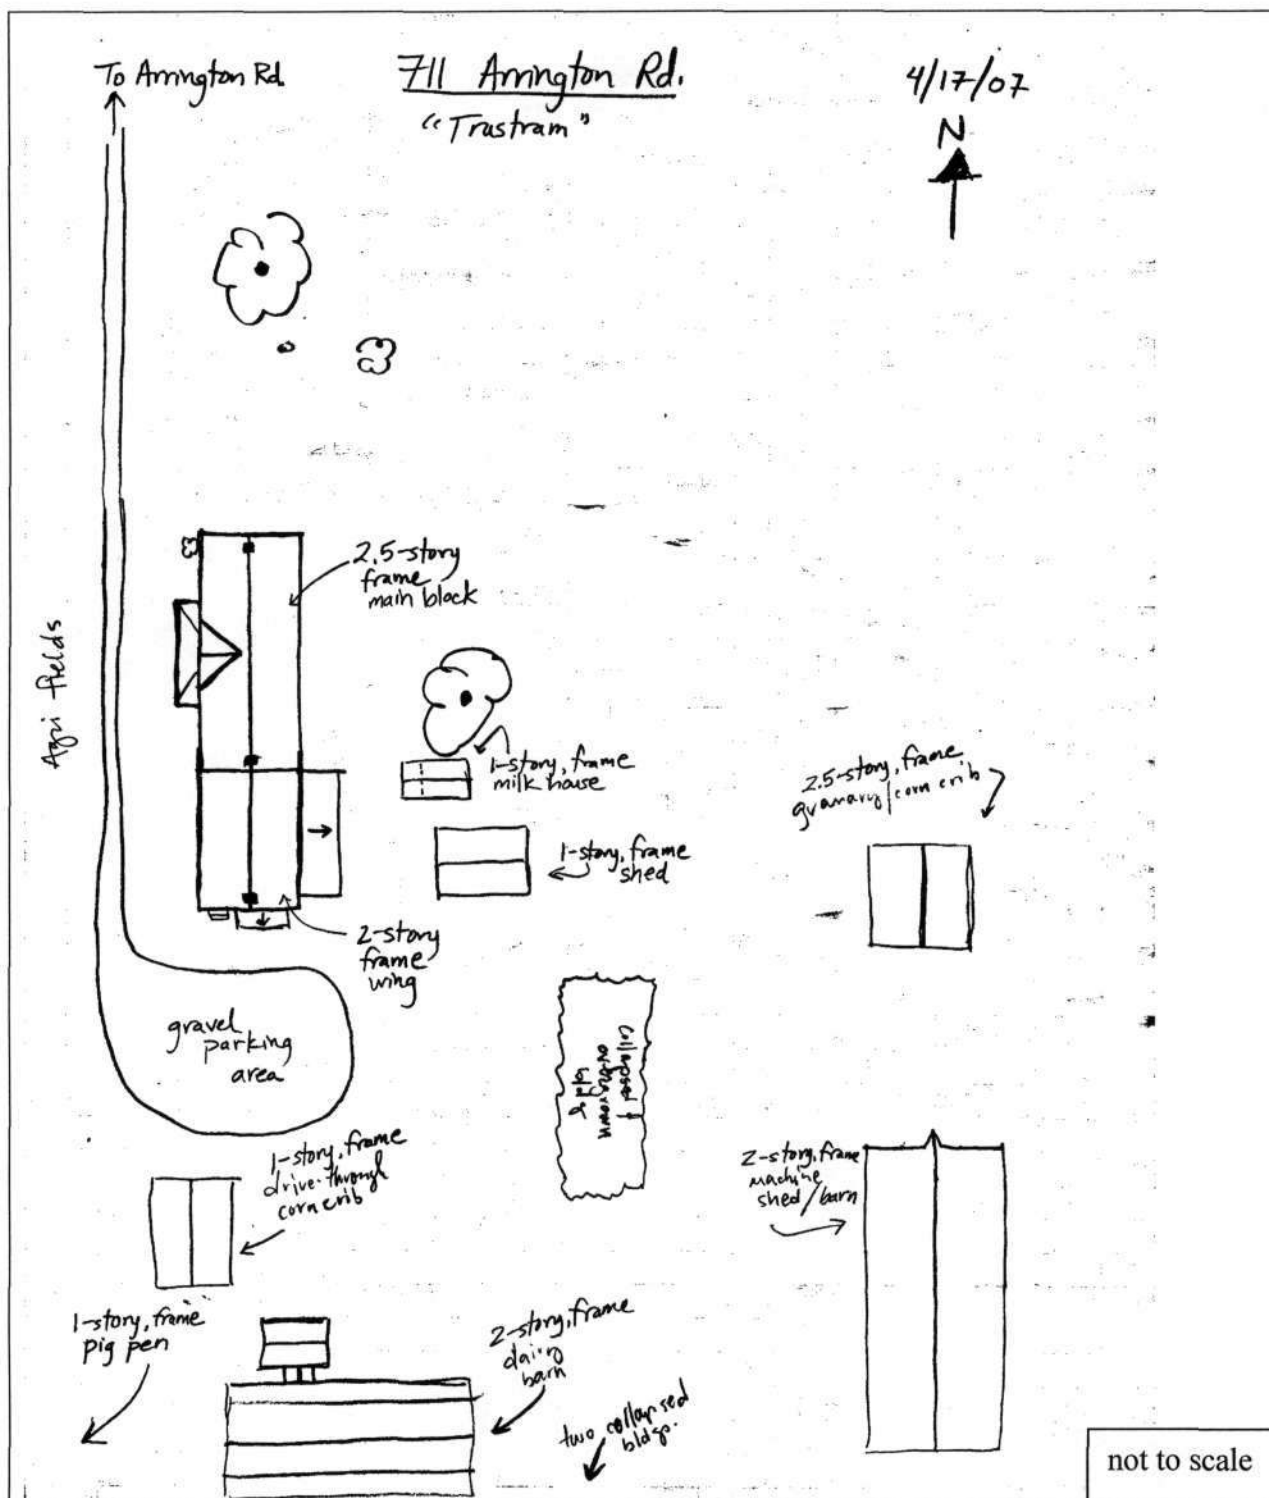 To Arrington Rd.
711 Arrington Rd.
4/17/07
"Trustram"
N
2.5-story
frame
main block
Agri fields
1-story, frame
milk house
2.5-story, frame
granary/corn crib
1-story, frame
shed
2-story
frame
wing
gravel
parking
area
collapsed &
overgrown
bldg
1-story, frame
drive-through
corncrib
2-story, frame
machine
shed/barn
1-story, frame
pig pen
2-story, frame
dairy
barn
two collapsed
bldgs.
not to scale